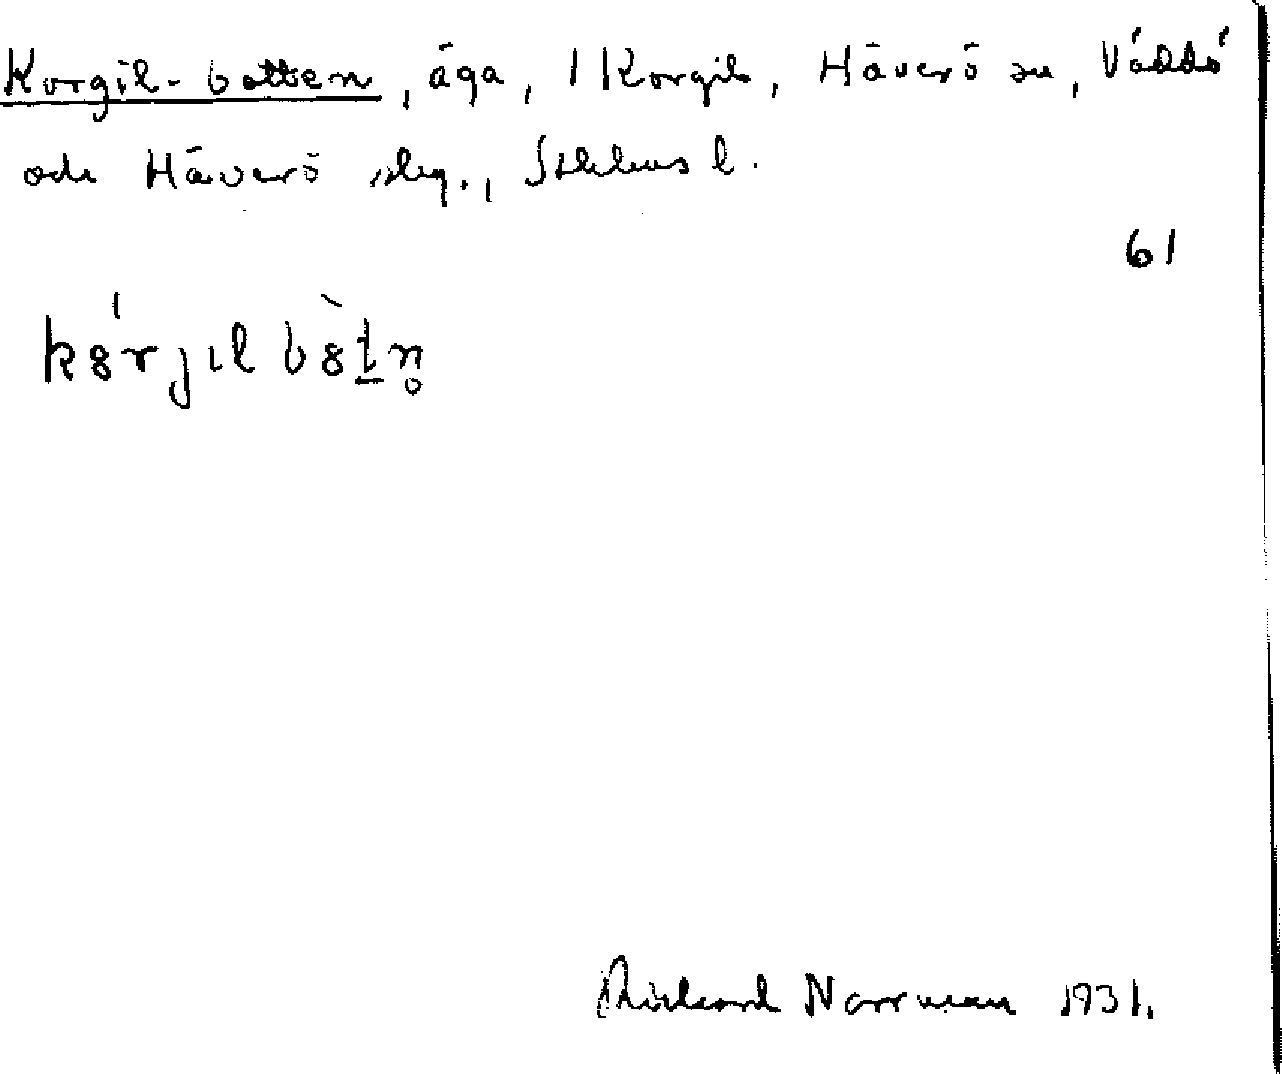 Korgil-botten, äga, 1 Korgil, Häverö sn, Väddö
och Häverö skg., Sthlms l.
61
kȣ́rjil bȣ̀tn̥
Rickard Norrman 1931.